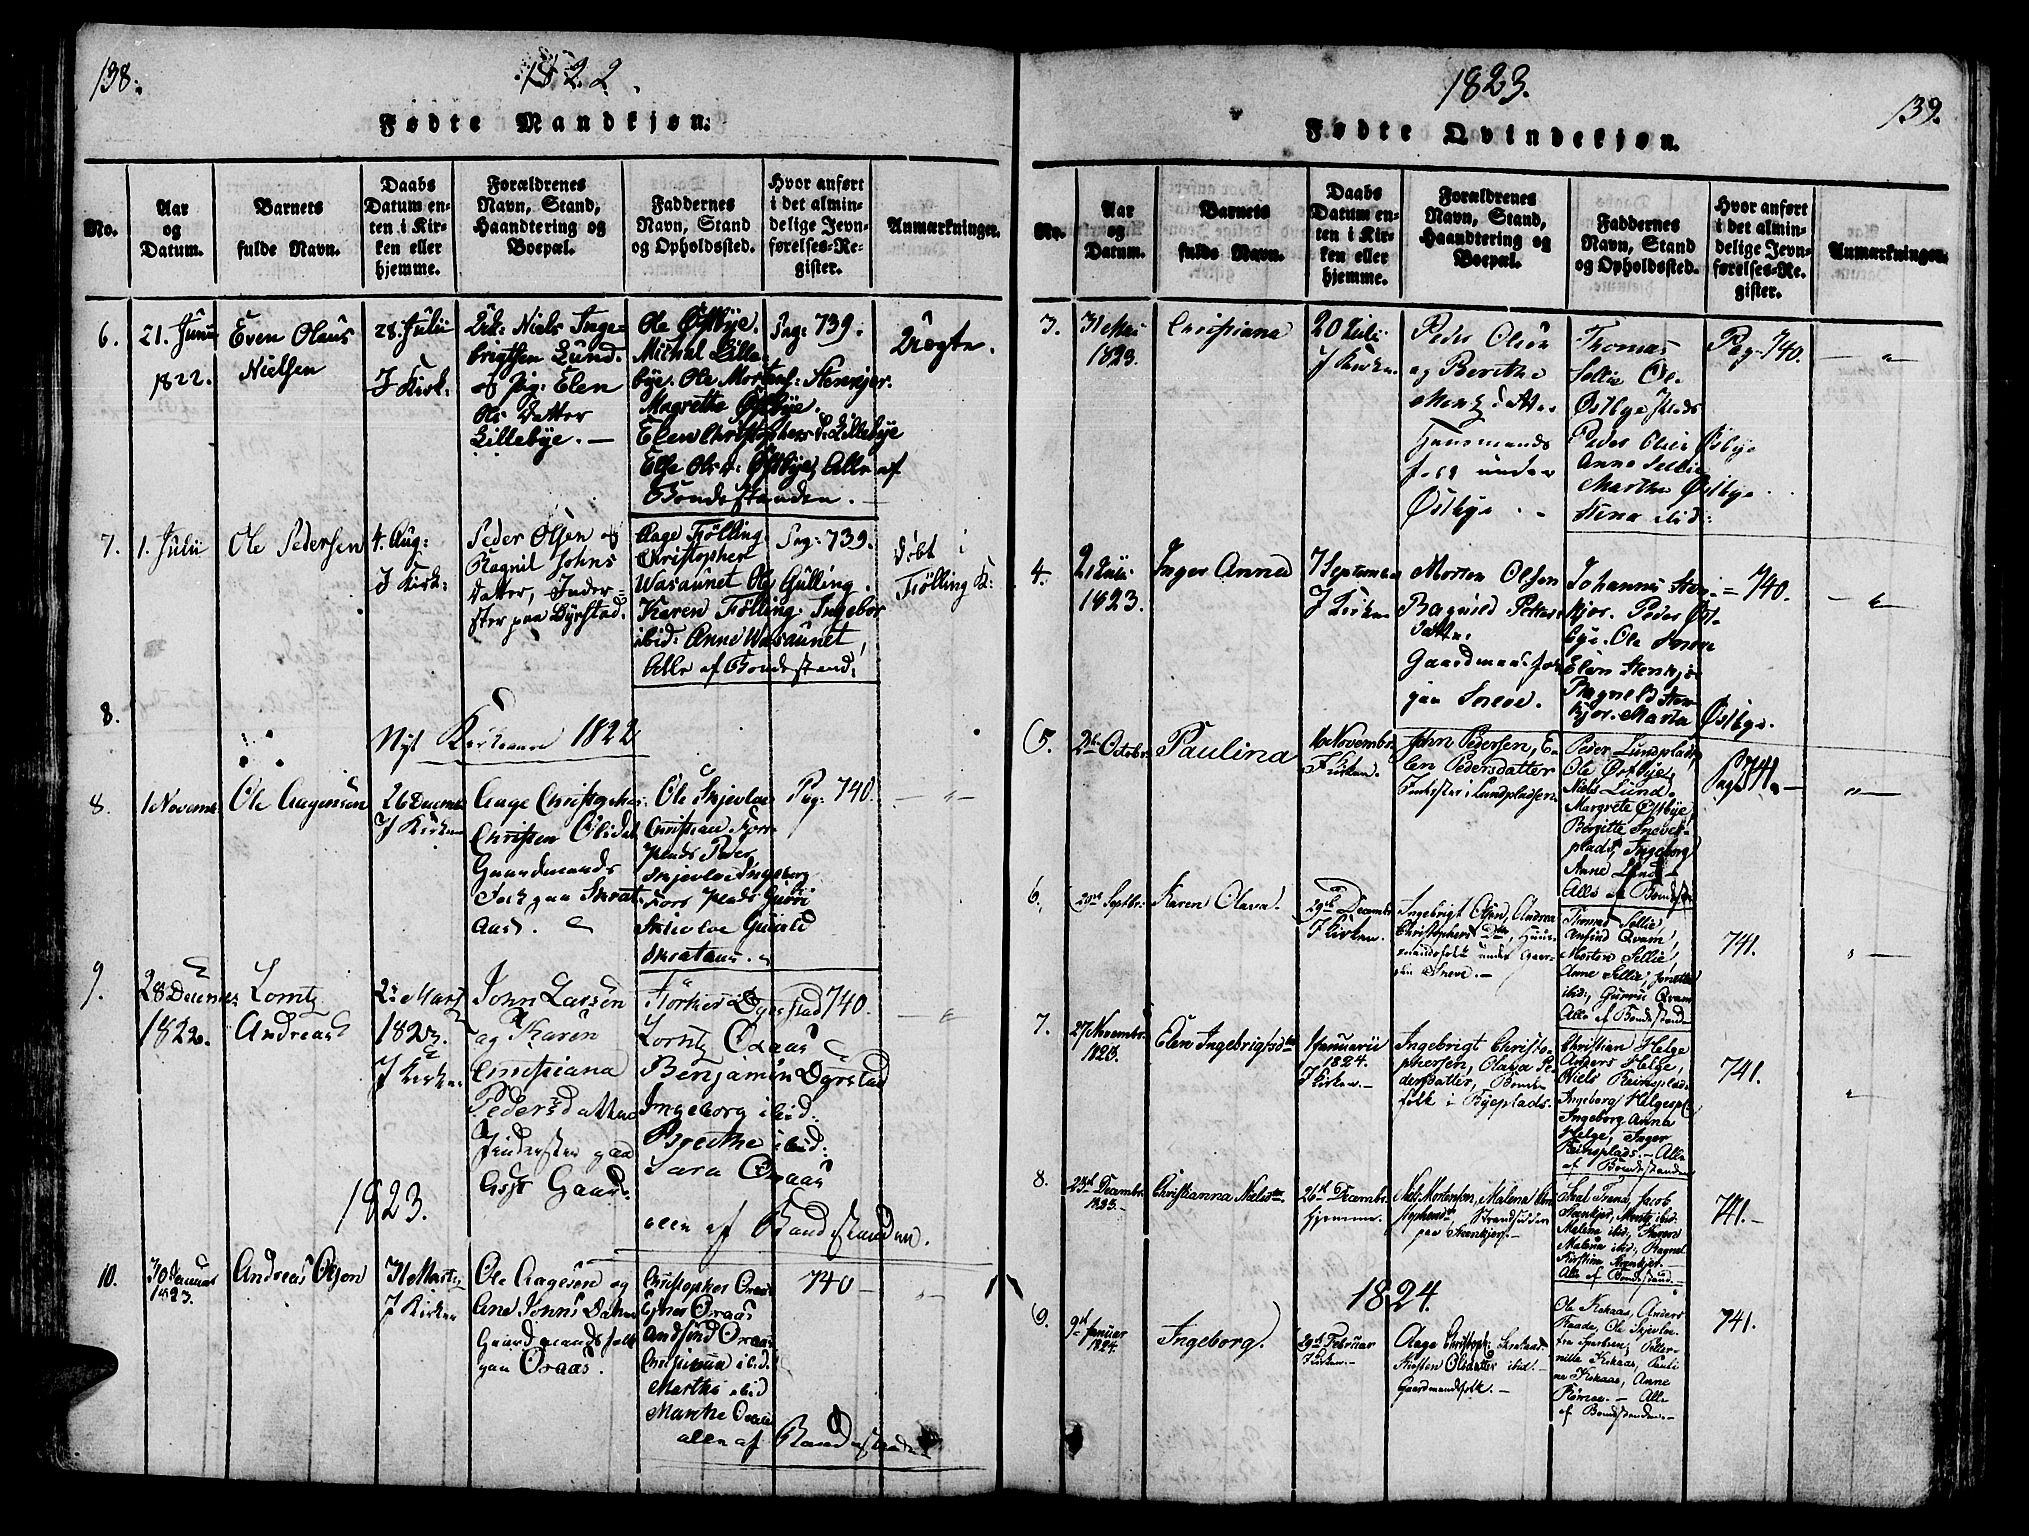 138.
1822.
Fødte Mandkjøn.
No.
Aar
og
Datum.
Barnets
fulde Navn.
Daabs
Datum en-
ten i Kir-
ken eller
hjemme.
Forældrenes
Navn, Stand,
Haandtering og
Boepæl.
Faddernes
Navn, Stand
og Opholdssted.
Hvor anført
i det almin-
delige Jevn-
førelses-Re-
gister.
Anmærkninger.
6.
21. Junii
1822.
Even Olaus
Nielsen
28. Julii
I Kirk:
Niels Inge-
brigtsen Lund.
og Pig: Elen
Ols Datter
Lillebye. —
Ole Østbye.
Michal Lille-
bye. Ole Mortens: Stenkjer.
Magrethe Østbye.
Elen Christophers D. Lillebye
Else Ols D: Østbye, Alle af
Bondestanden. —
Pag: 739.
Uægte.
7.
1. Julii
Ole Pedersen
4. Aug:
I Kirk:
Peder Olsen og
Ragnil Johns
Datter, Inder-
ster paa Dyrstad.
Aage Fiølling.
Christopher
Wasaunet Ole Gulling.
Karen Fiølling. Ingebor
ibid: Anne Wasaunet,
Alle af Bondestand:
Pag: 739.
døbt i
Fiølling K:
8.
Nyt Kirkeaar 1822
8.
1 Novemr
Ole Aagensen
26 Decemr
I Kirken
Aage Christophers:
Christen Olidat
Gaardmands
Folk paa Skrat-
Aas.
Ole Skjevloe
Christian Fors-
plads Peder
Skjevloe Ingeborg
Fors Plads Guri
Skjevloe
Skrataas.
Pag: 740.
9.
28 Decemr
1822.
Lorntz
Andreas
2 Marts
1823.
I Kirken
John Larsen
og Karen
Christiana
Pedersdatter
Inderster paa
Gaard.
Dyrstad
Lorntz Oraas
Benjamin Dyrstad
Ingeborg ibid:
Berithe ibid:
Sara Oraas
alle af Bondestanden.
740.
1823.
10.
30 Januar
1823.
Andreas Olson
31 Marts
I Kirken
Ole Aagesen og
Ane Johns Datter
Gaardmands folk
paa Oraas.
Christopher Oraas
Oraas
Andsind Oraas
Christiana ibid.
Martha ibid
Marthe
alle af Bondestanden
740 —
1823.
139.
Fødte Qvindekjøn.
No.
Aar
og
Datum.
Barnets
fulde Navn.
Daabs
Datum en-
ten i Kir-
ken eller
hjemme.
Forældrenes
Navn, Stand,
Haandtering og
Boepæl.
Faddernes
Navn, Stand
og Opholdssted.
Hvor anført
i det almin-
delige Jevn-
førelses-Re-
gister.
Anmærkninger.
3.
31 Mai
1823.
Christiana
20 Juli
I Kirken.
Peder Olsen
og Berithe
datter
Huusmands
folk under
Østbye.
Thomas
Sellie Ole
Østbye Plads
Peder Olsen Østbye
Anne Sellie
Martha Østbye.
Stina ibid:
Pag. 740.
4.
21 Juli
1823.
Inger Anna
7 September
I Kirken
Morten Olsen
Ragnild Peders
datter
Gaardmansfolk
paa Sneve.
Johannes Sten-
kjer. Peder Øst-
bye. Ole Sneve
Elen Stenkjer
Ragneld Sten-
kjer. Marta Østbye.
740.
5.
Octobr
Paulina
16 Novembr.
I Kirken.
John Pedersen, E-
len Pedersdatter
Inderster i Lundpladsen.
Peder Lundplads,
Ole Østbye,
Niels Lund.
Margrete Østbye,
Bergitte Sneves-
plads, Ingeborg
Anne Lund —
Alle af Bondest
Pag. 741.
6.
20de Septbr.
Karen Olava.
29de Decembr
I Kirken.
Ingebrigt Olsen, Andrea
Christophers Dtr, Huus-
mandsfolk under Gaar-
den Sneve. —
Thomas Sellie,
Ansind Qvam,
Morten Sellie,
Anne Sellie,
ibid:, Gurru Qvam
Alle af Bondestanden
741.
7.
27 Novembr
1823.
Elen Ingebrigtsdtr
1 Januarii
1824.
I Kirken. —
Ingebrigt Christo-
phersen, Olava Pe-
dersdatter, Bonde-
folk i Byeplads.
Christian Helge
Anders Helge,
Niels Reinsplads
Ingeborg Helgespl:
Ingeborg Anna
Helge, Inger
Reinsplads. — Alle
af Bondestanden
741.
8.
23de Decembr
1823. —
Christianna Nielsdtr
26de Decembr.
hjemme.
Mortensen, Malena
Strandsidder
paa Steenkjer.
Jacob
Steenkjer,
Malena ibid,
Malena ibid, Ragnel
Kirstina Steenkjer. —
Alle af Bondestand. —
741. —
1824.
9.
9de Januar
1824.
Ingeborg.
29de Februar
I Kirken. —
Aage Christoph:
Kirsten Olsdatter ibid. —
Gaardmandsfolk. —
Ole Kirkaas, Anders
Raade, Ole Skjevloe
fra Sparboen, Peder-
nille Kirkaas, Pauli
ne Kirkaas, Anne
— Alle
af Bondestanden. —
741.